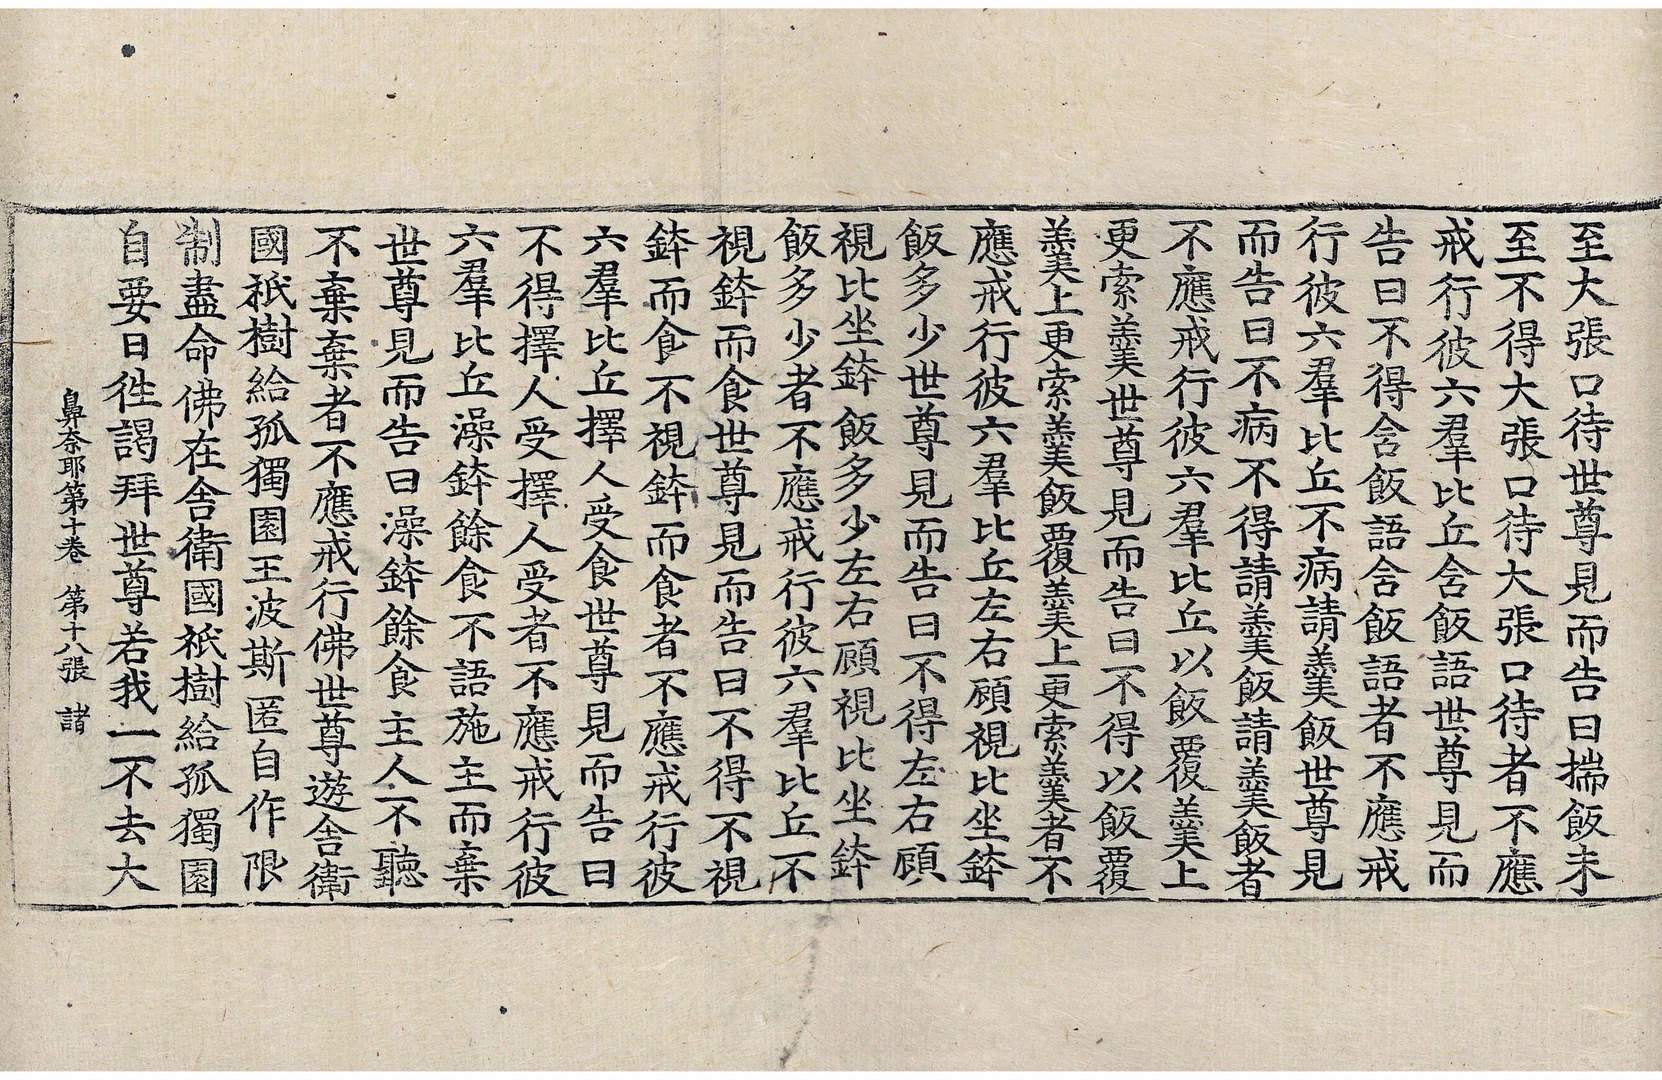 至大張口待世尊見而告曰揣飯未
至不得大張口待大張口待者不應
戒行彼六羣比丘含飯語世尊見而
告曰不得含飯語含飯語者不應戒
行彼六羣比丘不病請羹飯世尊見
而告曰不病不得請羹飯請羹飯者
不應戒行彼六羣比丘以飯覆羹上
更索羹世尊見而告曰不得以飯覆
羹上更索羹飯覆羹上更索羹者不
應戒行彼六羣比丘左右顧視比坐鉢
飯多少世尊見而告曰不得左右顧
視比坐鉢飯多少左右顧視比坐鉢
飯多少者不應戒行彼六羣比丘不
視鉢而食世尊見而告曰不得不視
鉢而食不視鉢而食者不應戒行彼
六羣比丘擇人受食世尊見而告曰
不得擇人受擇人受者不應戒行彼
六羣比丘澡鉢餘食不語施主而棄
世尊見而告曰澡鉢餘食主人不聽
不棄棄者不應戒行佛世尊遊舍衛
國祇樹給孤獨園王波斯匿自作限
制盡命佛在舍衛國祇樹給孤獨園
自要日往謁拜世尊若我一不去大
鼻奈耶第十卷 第十八張 諸